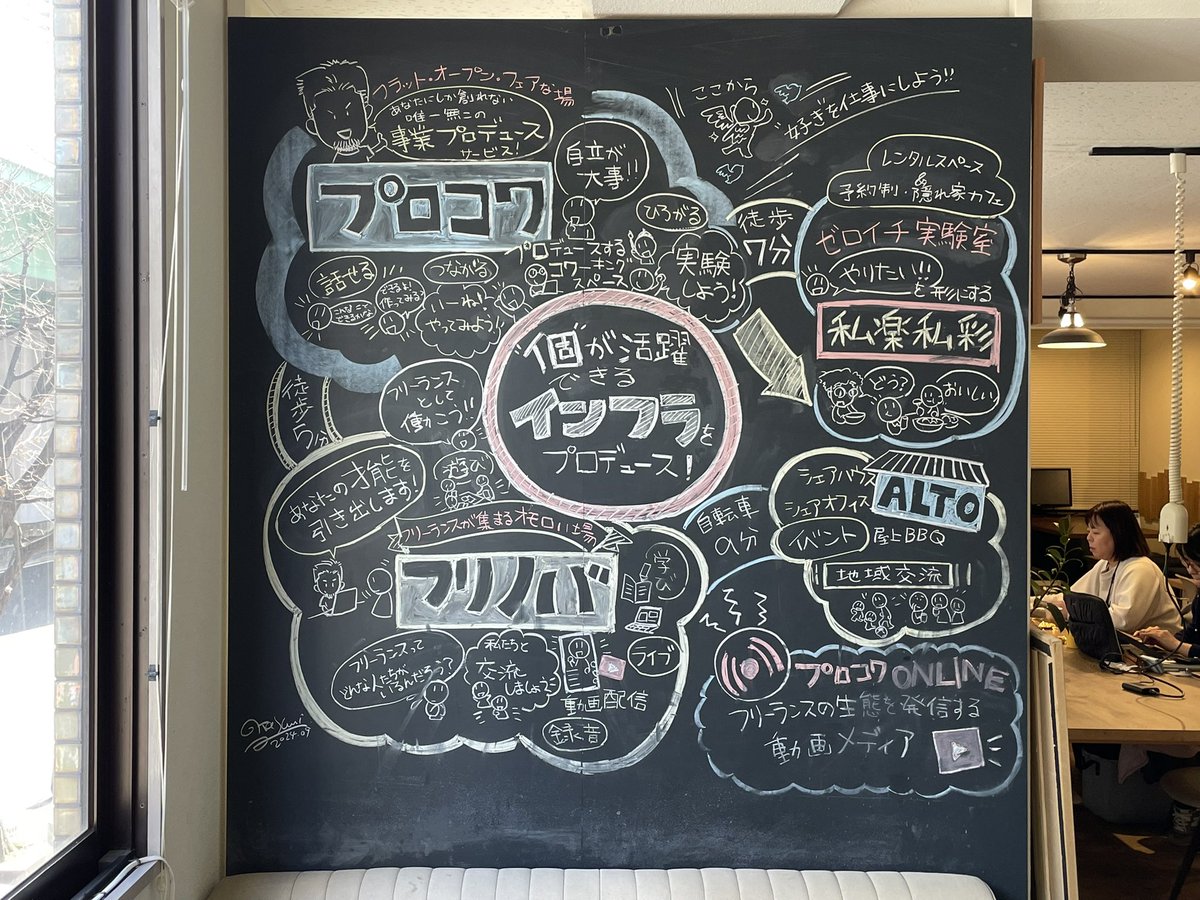 フラット・オープン・フェアな場
あなたにしか創れない
唯一無二の
事業プロデュース
サービス!
プロコワ
自立が
大事!!
ひろがる
プロデュースする
コワーキング
スペース
実験
しよう!
話せる
こんなこと
できるかな
できるよ!
作ってみる?
つながる
いーね!
やってみよう!
ここから
好きを仕事にしよう!!
徒歩
7分
レンタルスペース
&
予約制・隠れ家カフェ
ゼロイチ実験室
やりたい!!
を形にする
私楽私彩
どう?
おいしい
"個"が活躍
できる
インフラを
プロデュース!
徒歩5分
フリーランス
として
働かこう!!
あなたの才能を
引き出します!
遊び
フリーランスが集まる
場
フリノバ
学び
フリーランスって
どんな人たちが
いるんだろう?
私たちと
交流
しましょう
ライブ
動画配信
録音
自転車
9分
シェアハウス
シェアオフィス
ALTO
イベント
屋上BBQ
地域交流
プロコワ ONLINE
フリーランスの生態を発信する
動画メディア
2024.09